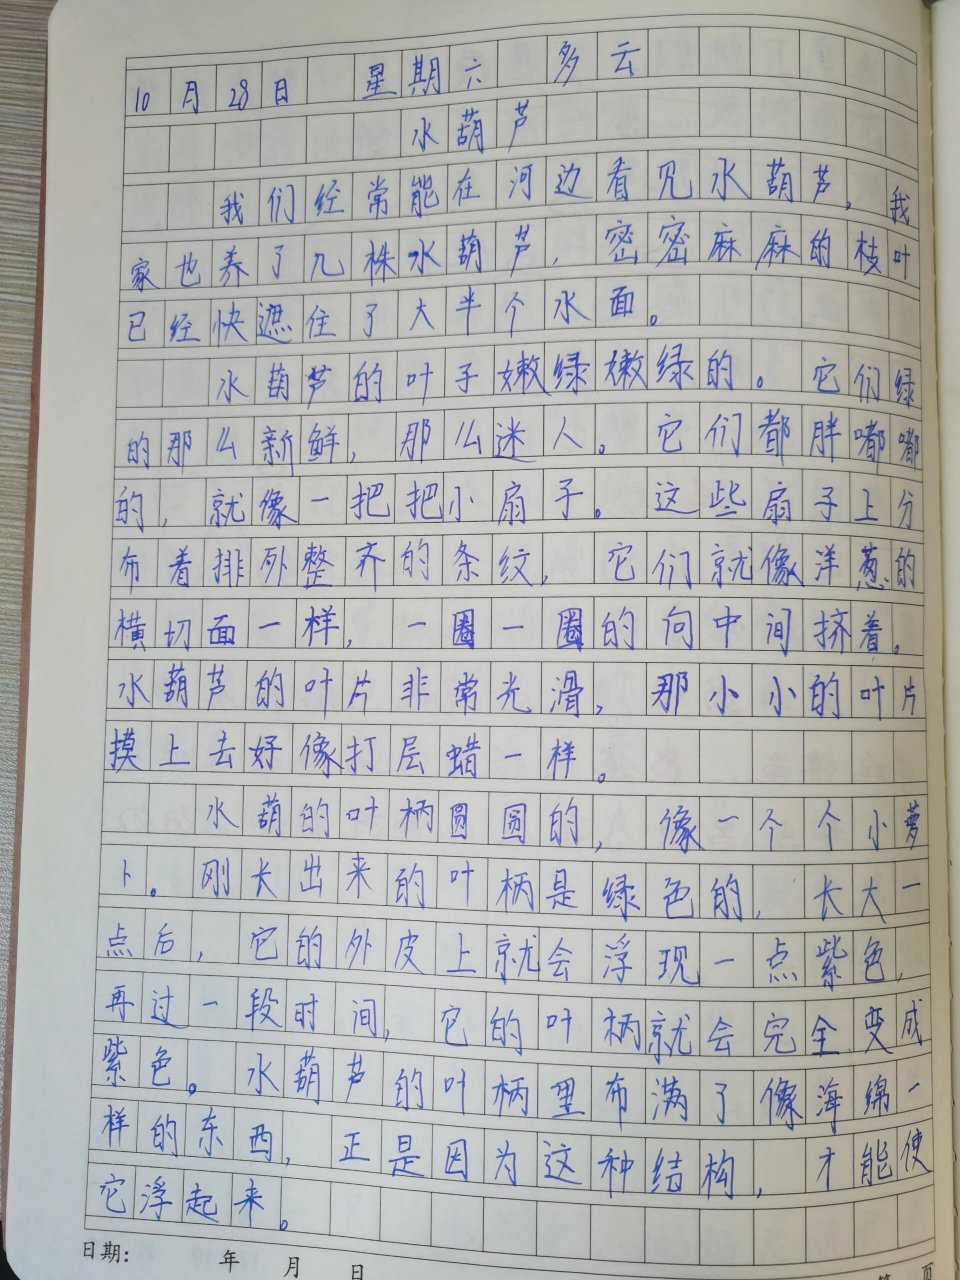 10月28日 星期六 多云
水葫芦
我们经常能在河边看见水葫芦，我
家也养了几株水葫芦，密密麻麻的枝叶
已经快遮住了大半个水面。
水葫芦的叶子嫩绿嫩绿的。它们绿
的那么新鲜，那么迷人。它们都胖嘟嘟
的，就像一把把小扇子。这些扇子上分
布着排列整齐的条纹，它们就像洋葱的
横切面一样，一圈一圈的向中间挤着。
水葫芦的叶片非常光滑，那小小的叶片
摸上去好像打层蜡一样。
水葫的叶柄圆圆的，像一个个小萝
卜。刚长出来的叶柄是绿色的，长大一
点后，它的外皮上就会浮现一点紫色，
再过一段时间，它的叶柄就会完全变成
紫色。水葫芦的叶柄里布满了像海绵一
样的东西，正是因为这种结构，才能使
它浮起来。
日期： 年 月 日
页